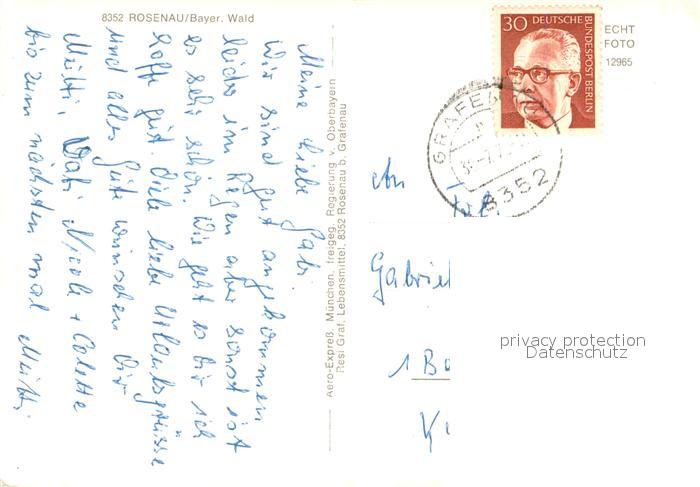 8352 ROSENAU/Bayer. Wald
Meine liebe Gabi.
Wir sind gut angekommen
leider im Regen aber sonst ist
es sehr schön. Wie geht es dir ich
hoffe gut. Viele liebe Urlaubsgrüsse
und alles Gute wünschen Dir
Mutti, Vati Nicole + Colette
bis zum nächsten mal Mutti.
Aero-Expreß, München, freigeg. Regierung v. Oberbayern
Resi Graf, Lebensmittel, 8352 Rosenau b. Grafenau
30 DEUTSCHE BUNDESPOST BERLIN
ECHT
FOTO
12965
8352
An
Gabriel
1 Be
privacy protection
Datenschutz